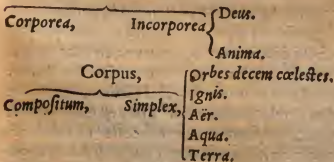 Corporea, Incorporea Deus.
Anima.
Corpus,
Compositum, Simplex, Orbes decem cœlestes.
Ignis.
Aër.
Aqua.
Terra.